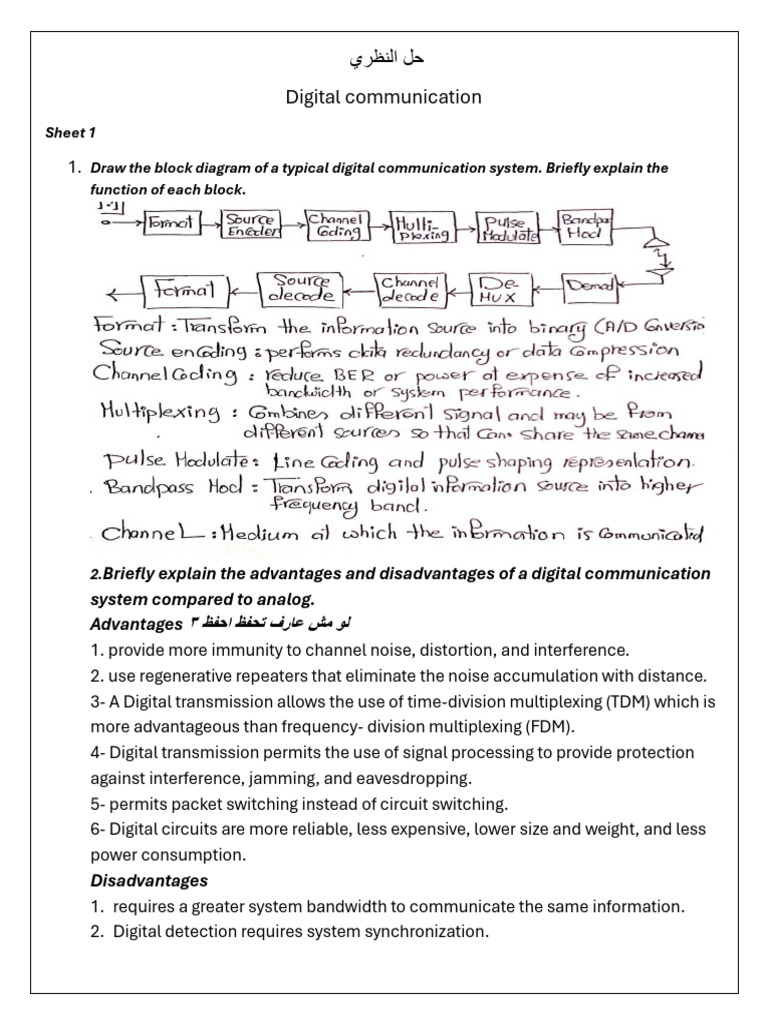 حل النظري
Digital communication
Sheet 1
1. Draw the block diagram of a typical digital communication system. Briefly explain the
function of each block.
Format Source Encoder Channel Coding Multi-plexing Pulse Modulate Bandpass Mod
Format Source decode Channel decode De-MUX Demod
Format : Transform the information source into binary (A/D Conversio
Source encoding : performs data redundancy or data Compression
Channel Coding : reduce BER or power at expense of increased
bandwidth or system performance.
Multiplexing : Combines different signal and may be from
different sources so that Can share the same channe
Pulse Modulate : Line Coding and pulse shaping representation.
Bandpass Mod : Transform digital information source into higher
frequency band.
Channel : Medium at which the information is Communicated
2.Briefly explain the advantages and disadvantages of a digital communication
system compared to analog.
Advantages لو مش عارف تحفظ احفظ ٣
1. provide more immunity to channel noise, distortion, and interference.
2. use regenerative repeaters that eliminate the noise accumulation with distance.
3- A Digital transmission allows the use of time-division multiplexing (TDM) which is
more advantageous than frequency- division multiplexing (FDM).
4- Digital transmission permits the use of signal processing to provide protection
against interference, jamming, and eavesdropping.
5- permits packet switching instead of circuit switching.
6- Digital circuits are more reliable, less expensive, lower size and weight, and less
power consumption.
Disadvantages
1. requires a greater system bandwidth to communicate the same information.
2. Digital detection requires system synchronization.